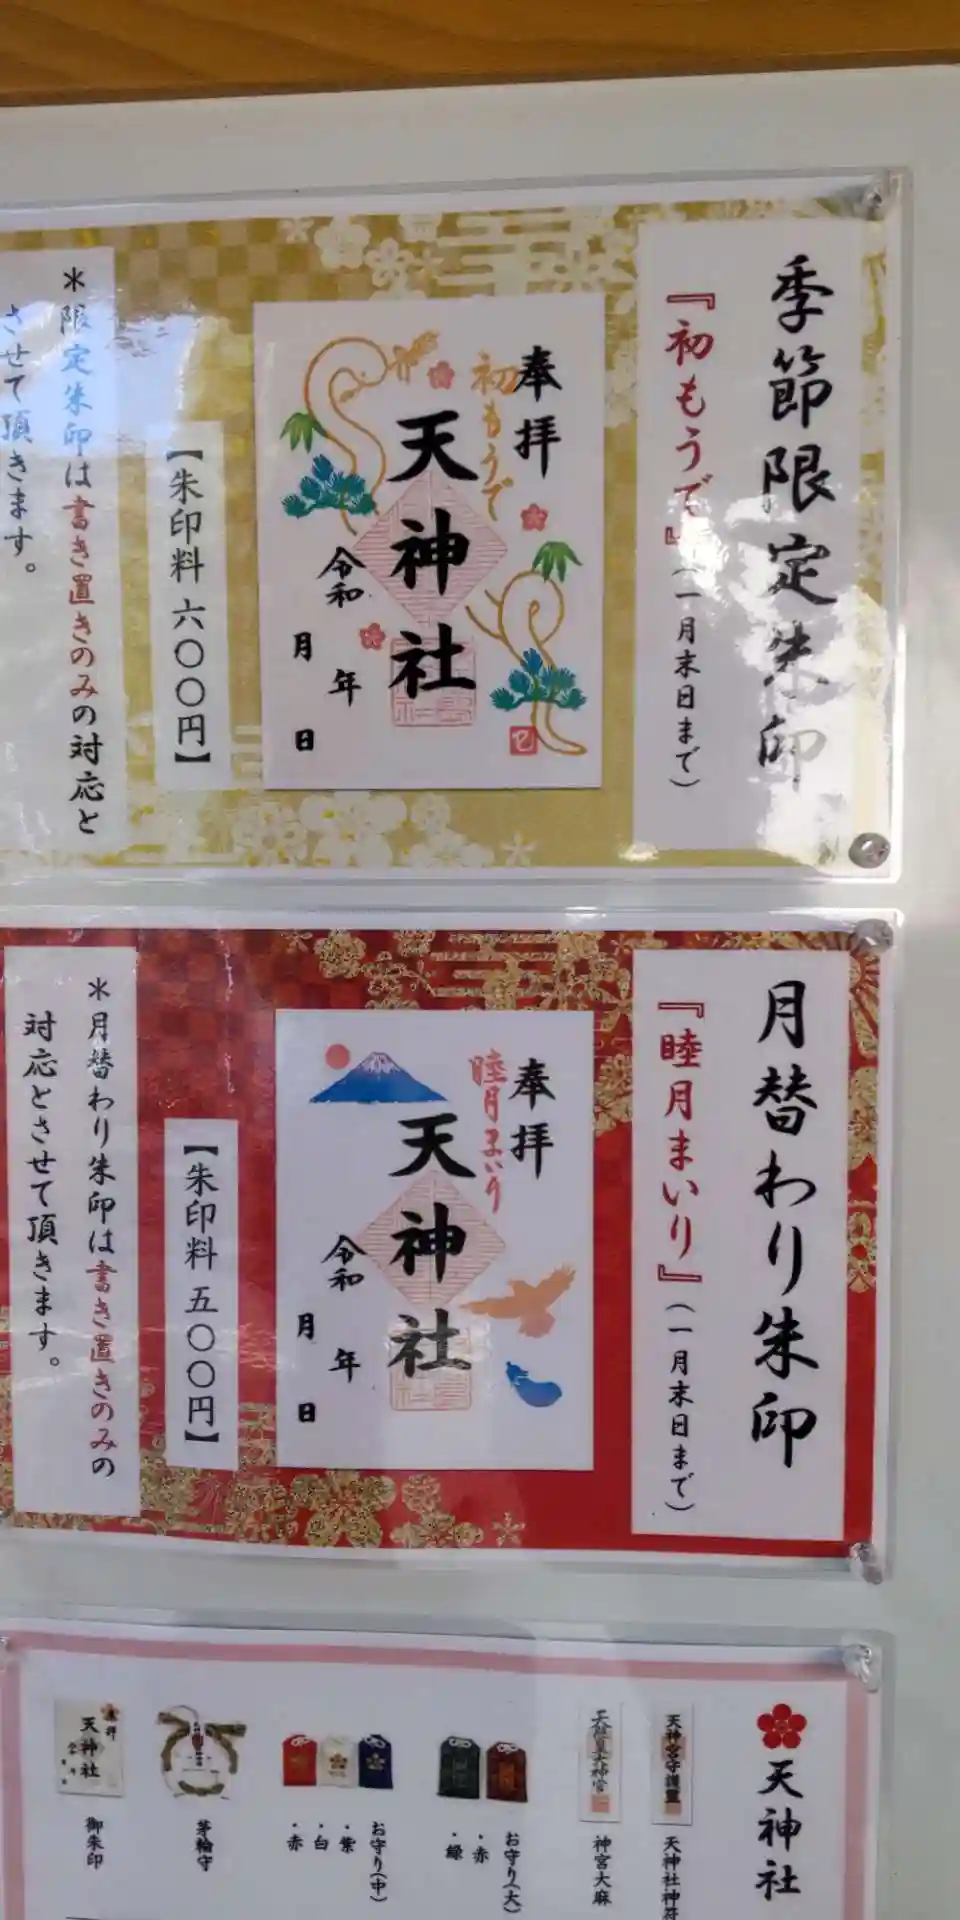 季節限定朱印
『初もうで』(一月末日まで)
奉拝
初もうで
天神社
令和 年
月 日
巳
【朱印料 六〇〇円】
*限定朱印は書き置きのみの対応と
させて頂きます。
月替わり朱印
『睦月まいり』(一月末日まで)
奉拝
睦月まいり
天神社
令和 年
月 日
【朱印料 五〇〇円】
*月替わり朱印は書き置きのみの
対応とさせて頂きます。
天神社
天神宮守護璽
天神社神符
神宮大麻
お守り(大)
・赤
・緑
お守り(中)
・紫
・白
・赤
茅輪守
奉拝
天神社
御朱印